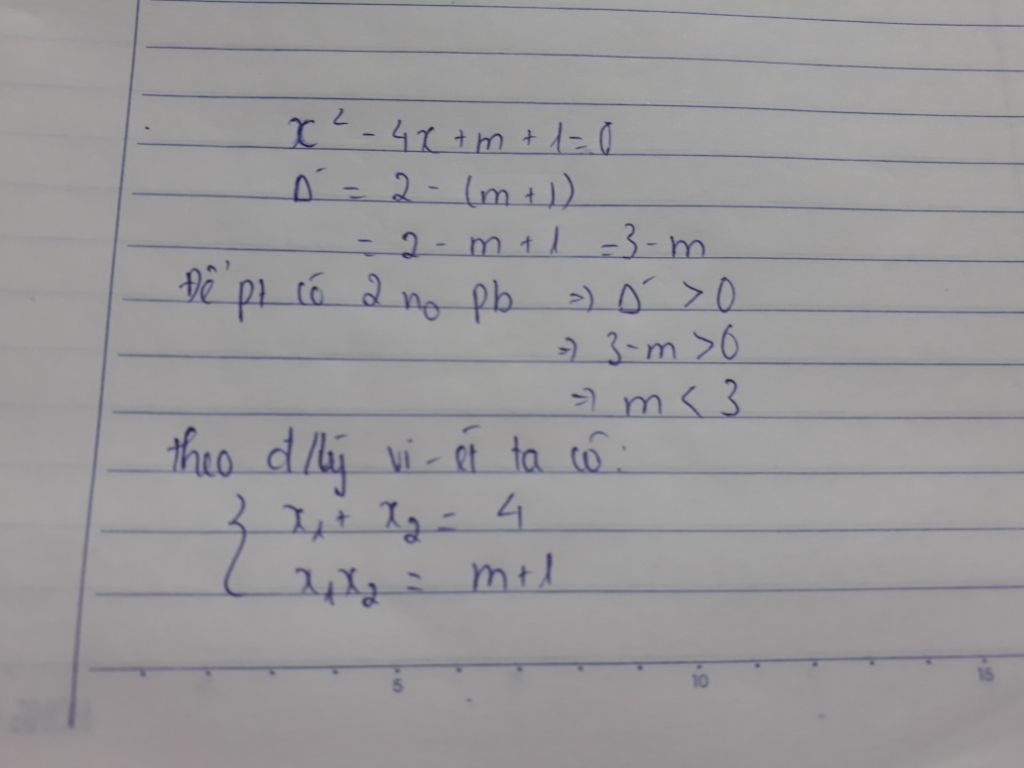 x² - 4x + m + 1 = 0
Δ' = 2 - (m + 1)
= 2 - m + 1 = 3 - m
Để pt có 2 no pb => Δ' > 0
=> 3 - m > 0
=> m < 3
theo đ/lý vi-ét ta có:
{ x₁ + x₂ = 4
x₁x₂ = m + 1
5 10 15